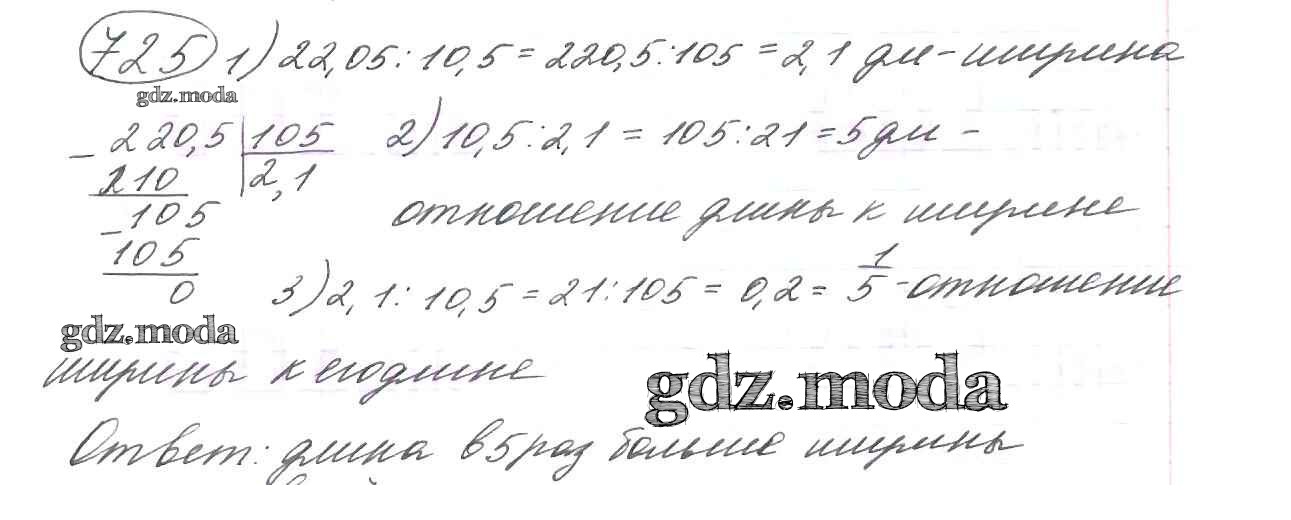 725 1) 22,05 : 10,5 = 220,5 : 105 = 2,1 дм - ширина
gdz.moda
- 220,5 | 105
210 | 2,1
- 105
105
0
2) 10,5 : 2,1 = 105 : 21 = 5 дм -
отношение длины к ширине
3) 2,1 : 10,5 = 21 : 105 = 0,2 = 1/5 - отношение
gdz.moda
ширины к его длине
gdz.moda
Ответ: длина в 5 раз больше ширины